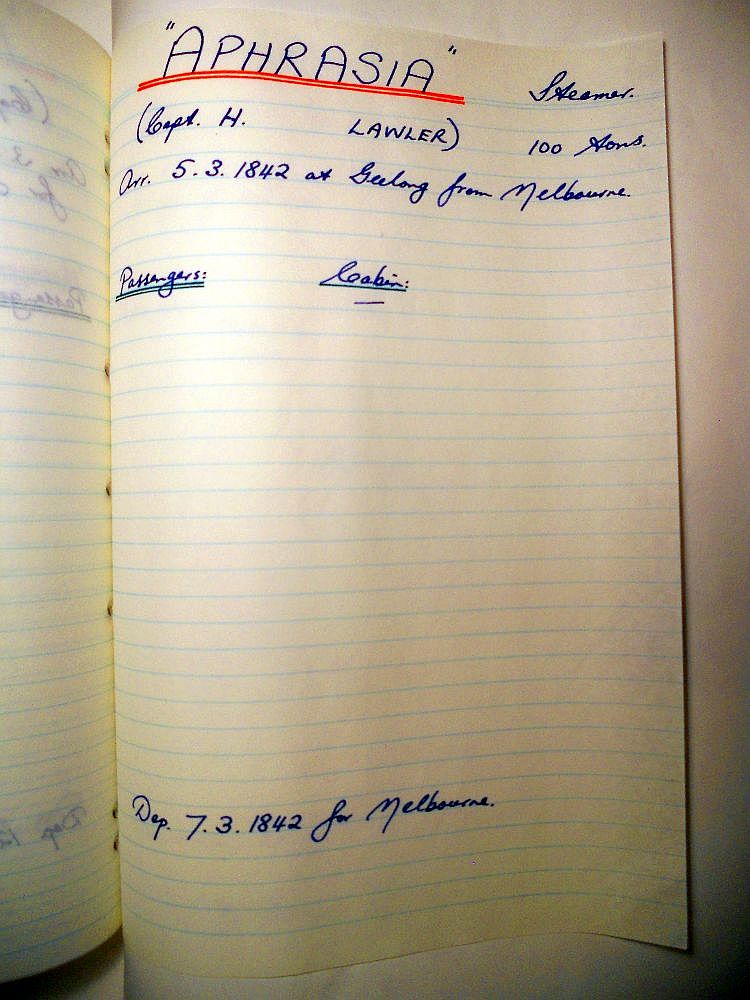 "APHRASIA"
Steamer.
(Capt. H. LAWLER)
100 Tons.
Arr. 5.3.1842 at Geelong from Melbourne.
Passengers: Cabin:
—
Dep. 7.3.1842 for Melbourne.